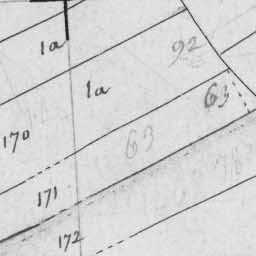 1a
92
1a
63
170
63
171
172